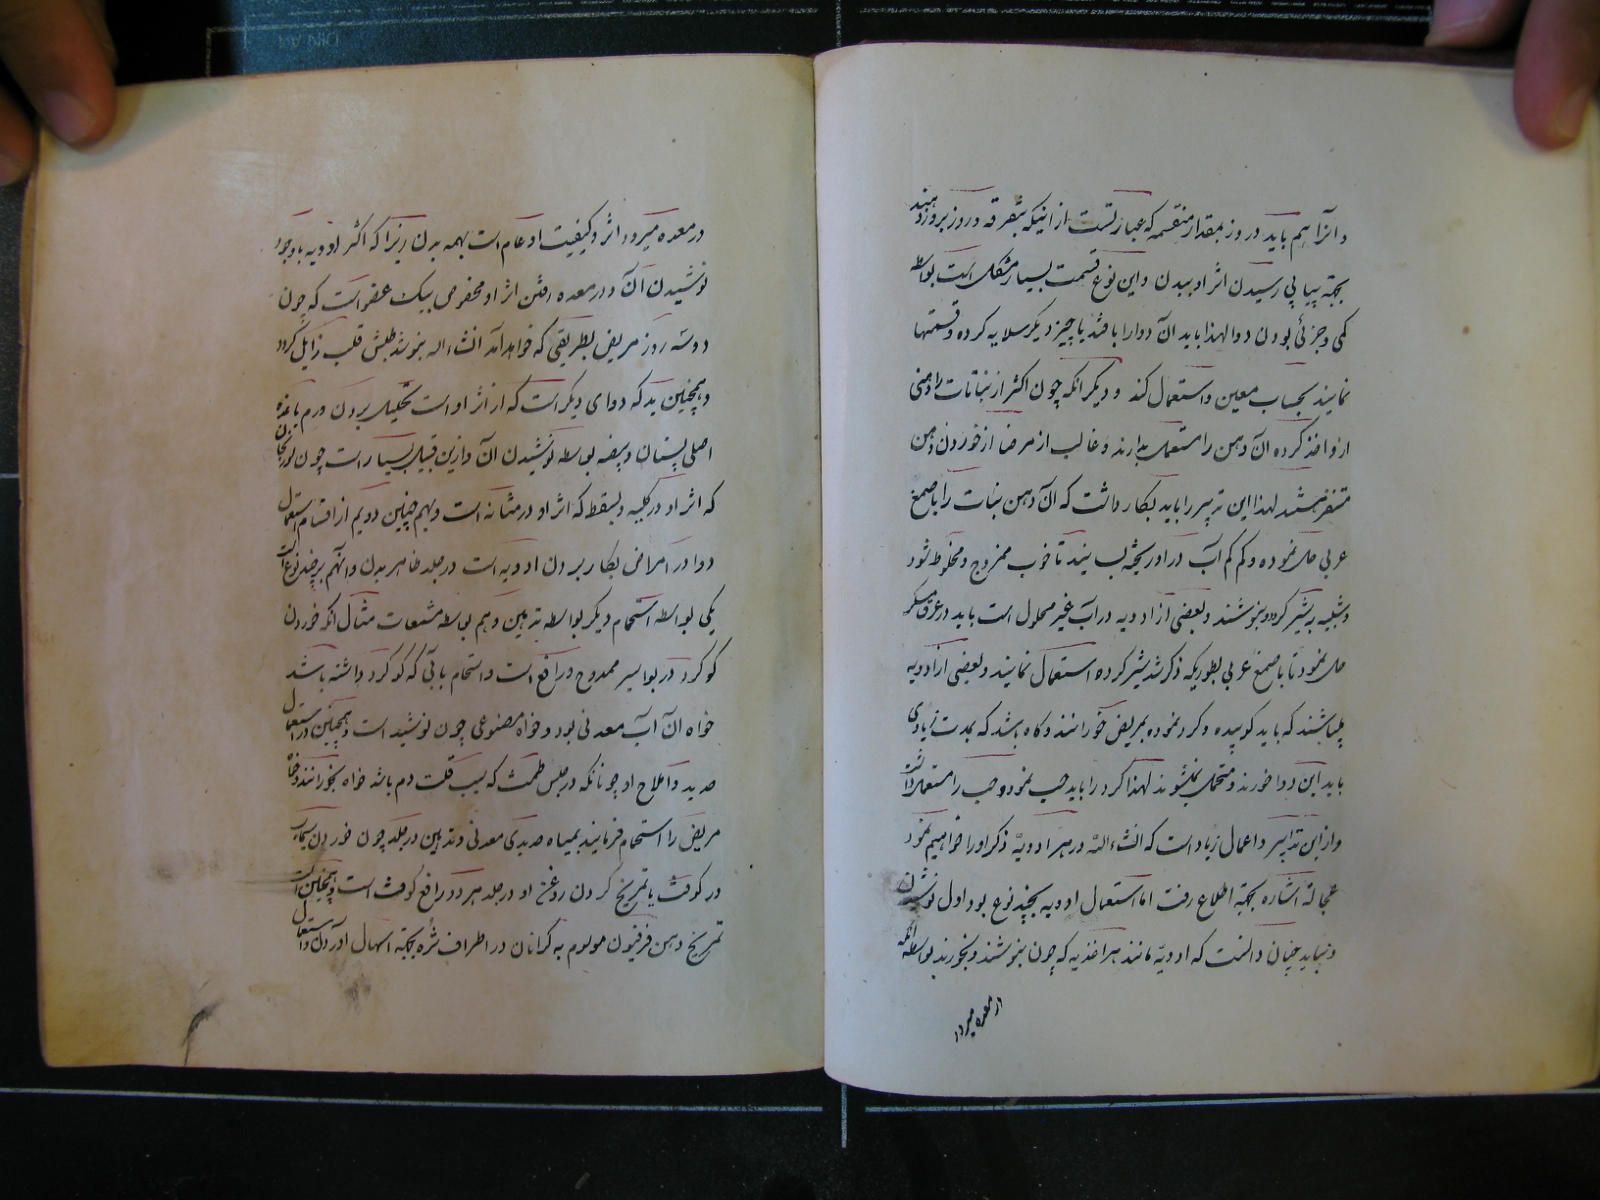 و آنرا هم باید در روز بمقدار منقسمه که عبارتست از اینکه بتفرقه در روز بروز دهند
بجهة پیاپی رسیدن اثر او ببدن و این نوع قسمت بسیار مشکل است بواسطه
کمی و جزئی بودن دوا لهذا باید آن دوا را با قند یا چیز دیگر سلایه کرده و قسمتها
نمایند بحساب معین و استعمال کند و دیگر آنکه چون اکثر از نباتات را دهنی
از او اخذ کرده آن دهن را مستعمل دارند و غالب از مرضا از خوردن دهن
متنفر هستند لهذا این تدبیر را باید بکار داشت که آن دهن نبات را با صمغ
عربی حل نموده و کم کم آب در او ریخته بسایند تا خوب ممزوج و مخلوط شود
و شبیه بشیر گردد و بنوشند و بعضی از ادویه در آب غیر محلول است باید در عرق مسکر
حل نمود تا با صمغ عربی بطوریکه ذکر شد شیر کرده استعمال نمایند و بعضی از ادویه
میباشند که باید کوبیده و گرد نموده بمریض خورانند و گاه باشد که بمدت زیادی
باید این دوا خورند و متحمل نمیشوند لهذا گرد را باید حب نمود و حب را مستعمل داشت
و از این تدابیر و اعمال زیاد است که انشاءالله در هر ادویه ذکر او را خواهیم نمود
عجالة اشاره بجهة اطلاع رفت اما استعمال ادویه بچند نوع بود اول نوشیدن
و نباید چنان دانست که ادویه مانند سر اغذیه که چون بنوشند و بخورند بواسطه آنکه
در معده میرود
در معده میرود اثر و کیفیت او عام است بهمه بدن زیرا که اکثر ادویه باوجود
نوشیدن آن و در معده رفتن اثر او مخصوص بیک عضو است که چون
دو سه روز مریض بطریقی که خواهد آمد انشاءاله بنوشد طپش قلب زایل گردد
و همچنین ید که دوای دیگر است که از اثر او است تحلیل بردن ورم با غده
اصلی پستان و بیضه بواسطه نوشیدن آن و ازین قبیل بسیار است چون
که اثر او در کلیه و بسقط که اثر او در مثانه است و بهم چنین دویم از اقسام استعمال
دوا در امراض بکار بردن ادویه است در جلد ظاهر بدن و آنهم بر چند نوع است
یکی بواسطه استحمام دیگر بواسطه تدهین و هم بواسطه مشمعات مثال آنکه خوردن
گوگرد در بواسیر ممدوح و رافع است و استحمام بآبی که گوگرد داشته باشد
خواه آن آب معدنی بود و خواه مصنوعی چون نوشید است و همچنین در استعمال
حدید و املاح او چونانکه در حبس طمث که بسبب قلت دم باشد خواه بخورانند و خواه
مریض را استحمام فرمایند بمیاه حدیدی معدنی و تدهین در جلد چون خوردن سیماب
در کوفت یا تمریخ کردن روغن او در جلد هر دو رافع کوفت است و همچنین است
تمریخ دهن فرفیون موسوم به کرانان در اطراف سُرّه بجهة اسهال آوردن و استعمال